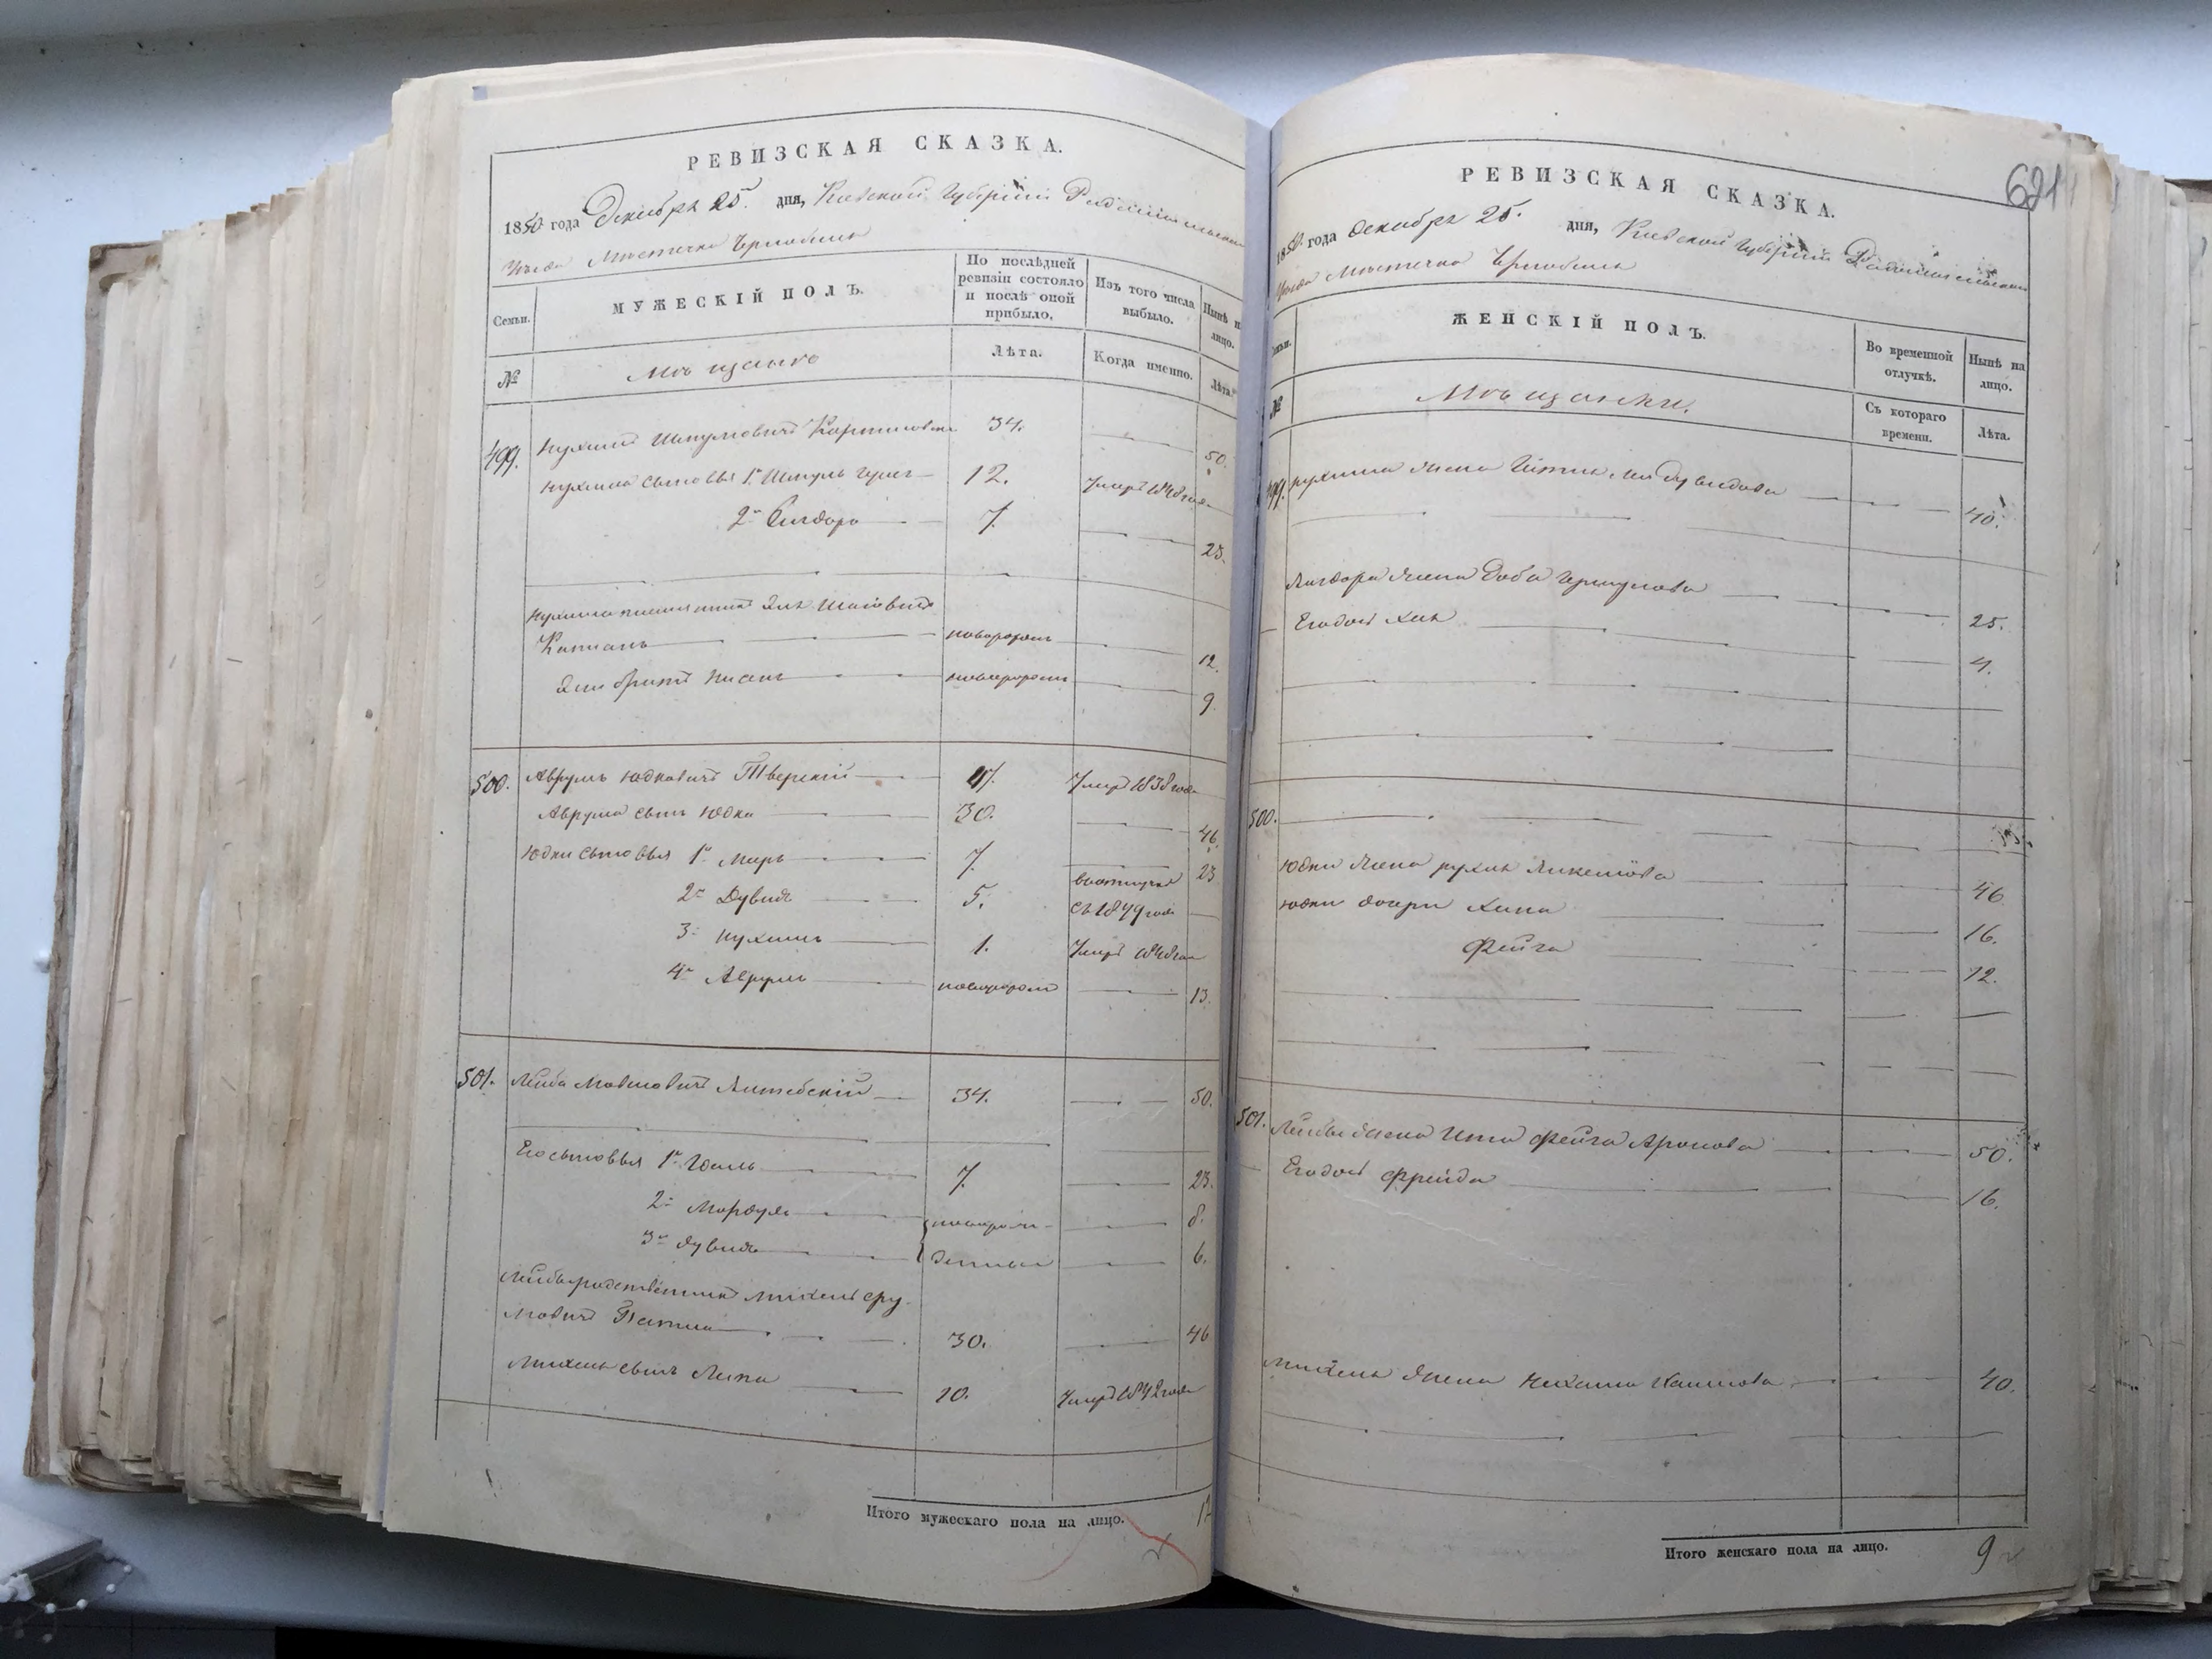 РЕВИЗСКАЯ СКАЗКА.
1850 года Декабря 25. дня, Киевской Губерніи Радомысльскаго
Уѣзда Мѣстечка Чернобыля
Семьи.
МУЖЕСКІЙ ПОЛЪ.
По послѣдней ревизіи состояло и послѣ оной прибыло.
Изъ того числа выбыло.
Нынѣ на лицо.
№
Мѣщане
Лѣта.
Когда именно.
Лѣта.
499. Нухимъ Шмулевичъ 34. 50.
Нухима сыновья 1й Шмуль 12. Умеръ 1848 года
2й 7. 23.
Нухима племянникъ
новорожен 12.
братъ новорожен 9.
500. Аврумъ Юдковичъ Тверскій 47. Умеръ 1838 года
Аврума сынъ Юдка 30. 46.
Юдки сыновья 1й Меръ 7. 23
2й Дувидъ 5. въ отлучкѣ съ 1849 года
3й Нухимъ 1. Умеръ 1848 года
4й Аврумъ новорожен 13.
501. Лейба Мовшовичъ Витебскій 34. 50.
Его сыновья 1й 7. 23.
2й Мордух новорож- 8.
3й Дувидъ денные 6.
Лейбы родственникъ Михель Сру-
мовичъ 30. 46
Михеля сынъ Липа 10. Умеръ 1842 года
Итого мужескаго пола на лицо. 12
РЕВИЗСКАЯ СКАЗКА.
621
1850 года Декабря 25. дня, Киевской Губерніи Радомысльскаго
Уѣзда Мѣстечка Чернобыля
Семьи.
ЖЕНСКІЙ ПОЛЪ.
Во временной отлучкѣ.
Нынѣ на лицо.
№
Мѣщанки.
Съ котораго времени.
Лѣта.
499. Нухима жена Дувидова 40.
жена Доба 25.
Его дочь Хая 4.
500.
Юдки жена Рухля 46
Юдки дочери Хана 16.
Фейга 12.
501. Лейбы жена Ита Фейга Аронова 50.
Его дочь Фрейда 16.
Михеля жена Нехама Хаимова 40.
Итого женскаго пола на лицо. 9